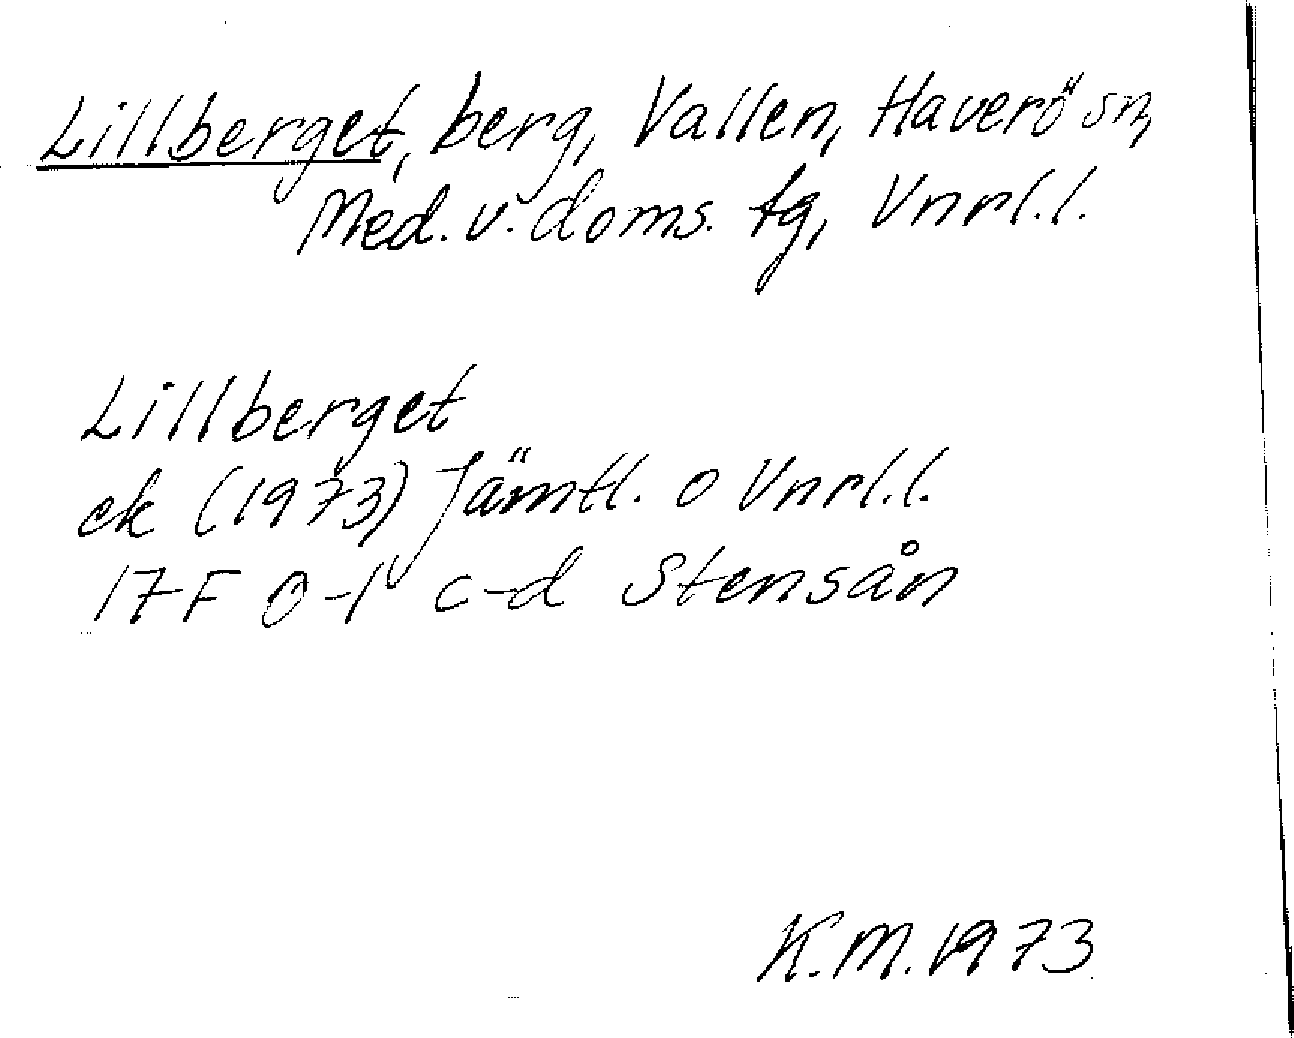 Lillberget, berg, Vallen, Haverö sn,
Med. v. doms. tg, Vnrl.l.
Lillberget
ek (1973) Jämtl. o Vnrl.l.
17F 0-1 c-d Stensån
K.M. 1973